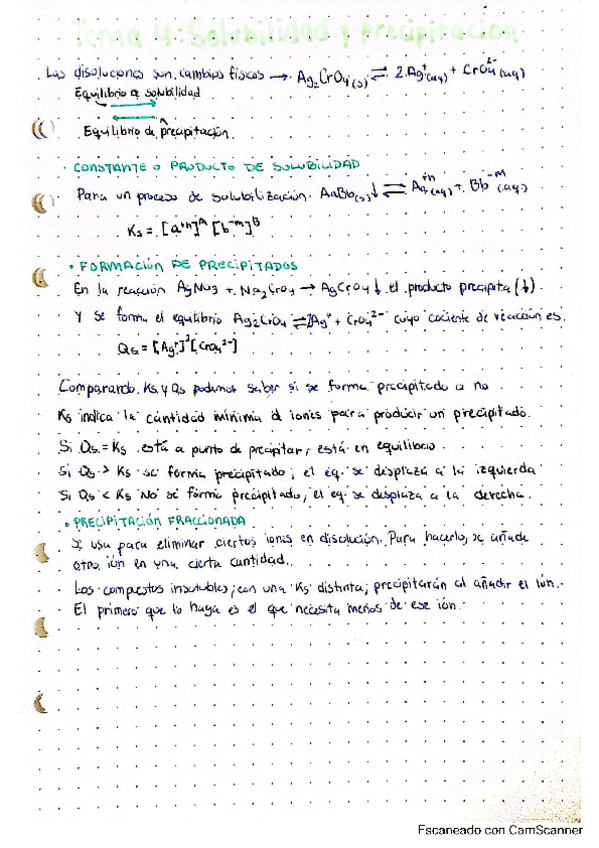 Tema 4: Solubilidad y precipitación
Las disoluciones son cambios físicos → Ag₂CrO₄(s) ⇌ 2Ag⁺(aq) + CrO₄²⁻(aq)
Equilibrio de solubilidad
Equilibrio de precipitación
· CONSTANTE O PRODUCTO DE SOLUBILIDAD
Para un proceso de solubilización AaBb(s)↓ ⇌ Aa⁺ⁿ(aq) + Bb⁻ᵐ(aq)
Ks = [a⁺ⁿ]ᴬ [b⁻ᵐ]ᴮ
· FORMACIÓN DE PRECIPITADOS
En la reacción AgNO3 + Na₂CrO4 → AgCrO4↓ el producto precipita (↓)
Y se forma el equilibrio Ag₂CrO₄ ⇌ 2Ag⁺ + CrO₄²⁻ cuyo cociente de reacción es
Qs = [Ag⁺]² [CrO₄²⁻]
Comparando Ks y Qs podemos saber si se forma precipitado o no
Ks indica la cantidad mínima d iones para producir un precipitado.
Si Qs = Ks está a punto de precipitar, está en equilibrio
Si Qs > Ks se forma precipitado, el eq. se desplaza a la izquierda
Si Qs < Ks No se forma precipitado, el eq. se desplaza a la derecha.
· PRECIPITACIÓN FRACCIONADA
Se usa para eliminar ciertos iones en disolución. Para hacerlo, se añade
otro ión en una cierta cantidad.
Los compuestos insolubles, con una Ks distinta, precipitarán al añadir el ión.
El primero que lo haga es el que necesita menos de ese ión.
Escaneado con CamScanner